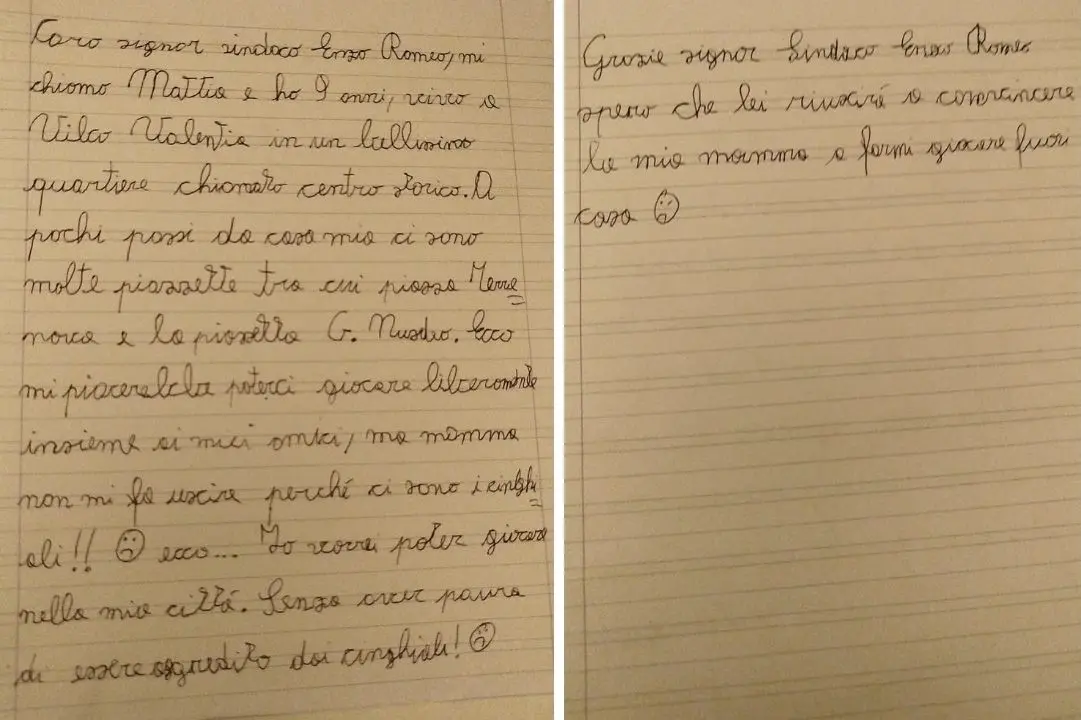 Caro signor sindaco Enzo Romeo, mi
chiamo Mattia e ho 9 anni, vivo a
Vibo Valentia in un bellissimo
quartiere chiamato centro storico. A
pochi passi da casa mia ci sono
molte piazzette tra cui piazza Terra
nova e la piazzetta G. Musdeo. Ecco
mi piacerebbe poterci giocare liberamente
insieme ai miei amici, ma mamma
non mi fa uscire perché ci sono i cinghi
ali!! ☹ ecco... Io vorrei poter giocare
nella mia città. Senza aver paura
di essere aggredito dai cinghiali! ☹
Grazie signor Sindaco Enzo Romeo
spero che lei riuscirá a convincere
la mia mamma a farmi giocare fuori
casa ☹